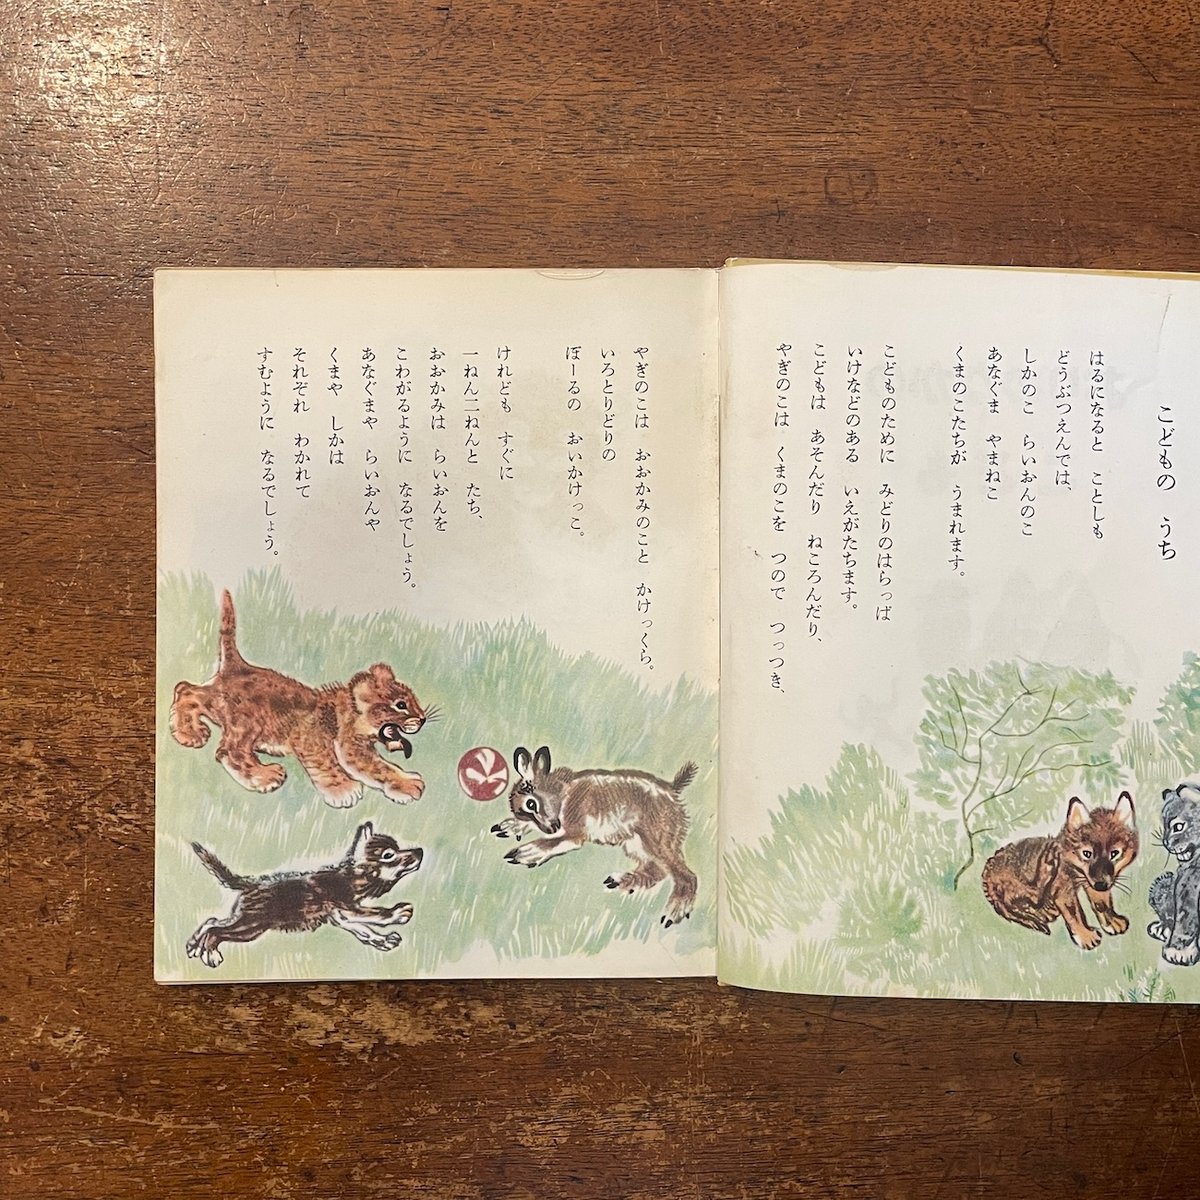 こどもの　うち
はるになると　ことしも
どうぶつえんでは、
しかのこ　らいおんのこ
あなぐま　やまねこ
くまのこたちが　うまれます。
こどものために　みどりのはらっぱ
いけなどのある　いえがたちます。
こどもは　あそんだり　ねころんだり、
やぎのこは　くまのこを　つので　つっつき、
やぎのこは　おおかみのこと　かけっくら。
いろとりどりの
ぼーるの　おいかけっこ。
けれども　すぐに
一ねん二ねんと　たち、
おおかみは　らいおんを
こわがるように　なるでしょう。
あなぐまや　らいおんや
くまや　しかは
それぞれ　わかれて
すむように　なるでしょう。